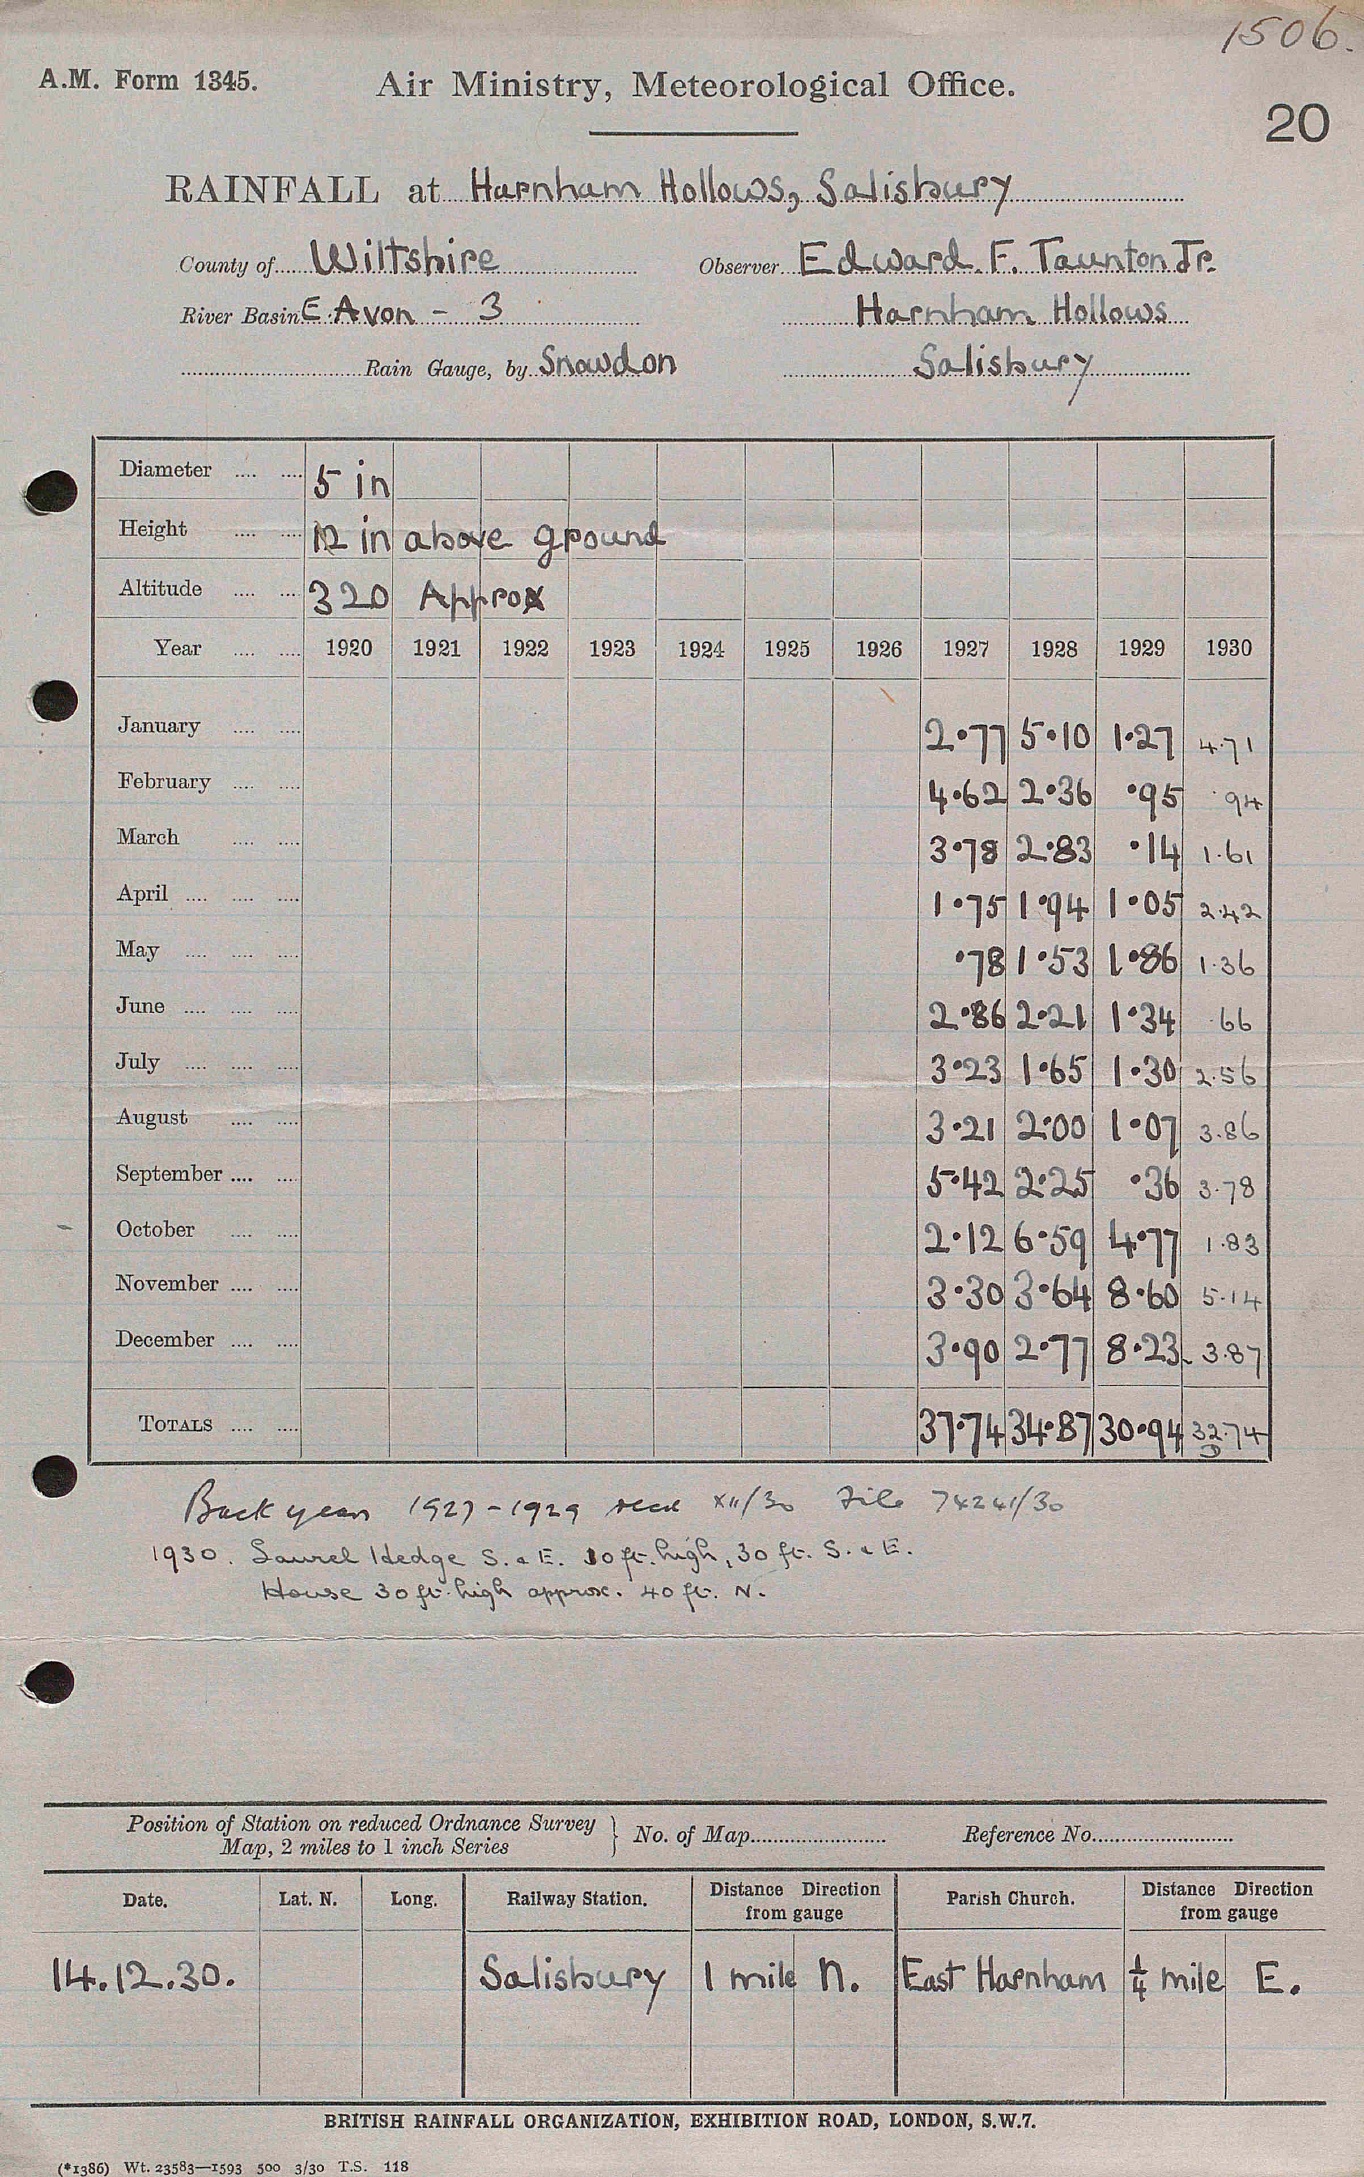 1506.
A.M. Form 1345. Air Ministry, Meteorological Office.
20
RAINFALL at Harnham Hollows, Salisbury
County of Wiltshire Observer Edward F. Taunton Jr.
River Basin E. Avon - 3 Harnham Hollows
Rain Gauge, by Snowdon Salisbury
Diameter 5 in
Height 12 in above ground
Altitude 320 Approx
Year 1920 1921 1922 1923 1924 1925 1926 1927 1928 1929 1930
January 2.77 5.10 1.27 4.71
February 4.62 2.36 .95 .94
March 3.78 2.83 .14 1.61
April 1.75 1.94 1.05 2.42
May .78 1.53 1.86 1.36
June 2.86 2.21 1.34 .66
July 3.23 1.65 1.30 2.56
August 3.21 2.00 1.07 3.86
September 5.42 2.25 .36 3.78
October 2.12 6.59 4.77 1.83
November 3.30 3.64 8.60 5.14
December 3.90 2.77 8.23 3.87
TOTALS 37.74 34.87 30.94 32.74
Back years 1927-1929 recd XII/30 File 74241/30
1930. Laurel Hedge S. & E. 10 ft. high, 30 ft. S. & E.
House 30 ft. high approx. 40 ft. N.
Position of Station on reduced Ordnance Survey
Map, 2 miles to 1 inch Series } No. of Map Reference No.
Date. Lat. N. Long. Railway Station. Distance Direction from gauge Parish Church. Distance Direction from gauge
14.12.30. Salisbury 1 mile N. East Harnham 1/4 mile E.
BRITISH RAINFALL ORGANIZATION, EXHIBITION ROAD, LONDON, S.W.7.
(*1386) Wt. 23583—1593 500 3/30 T.S. 118